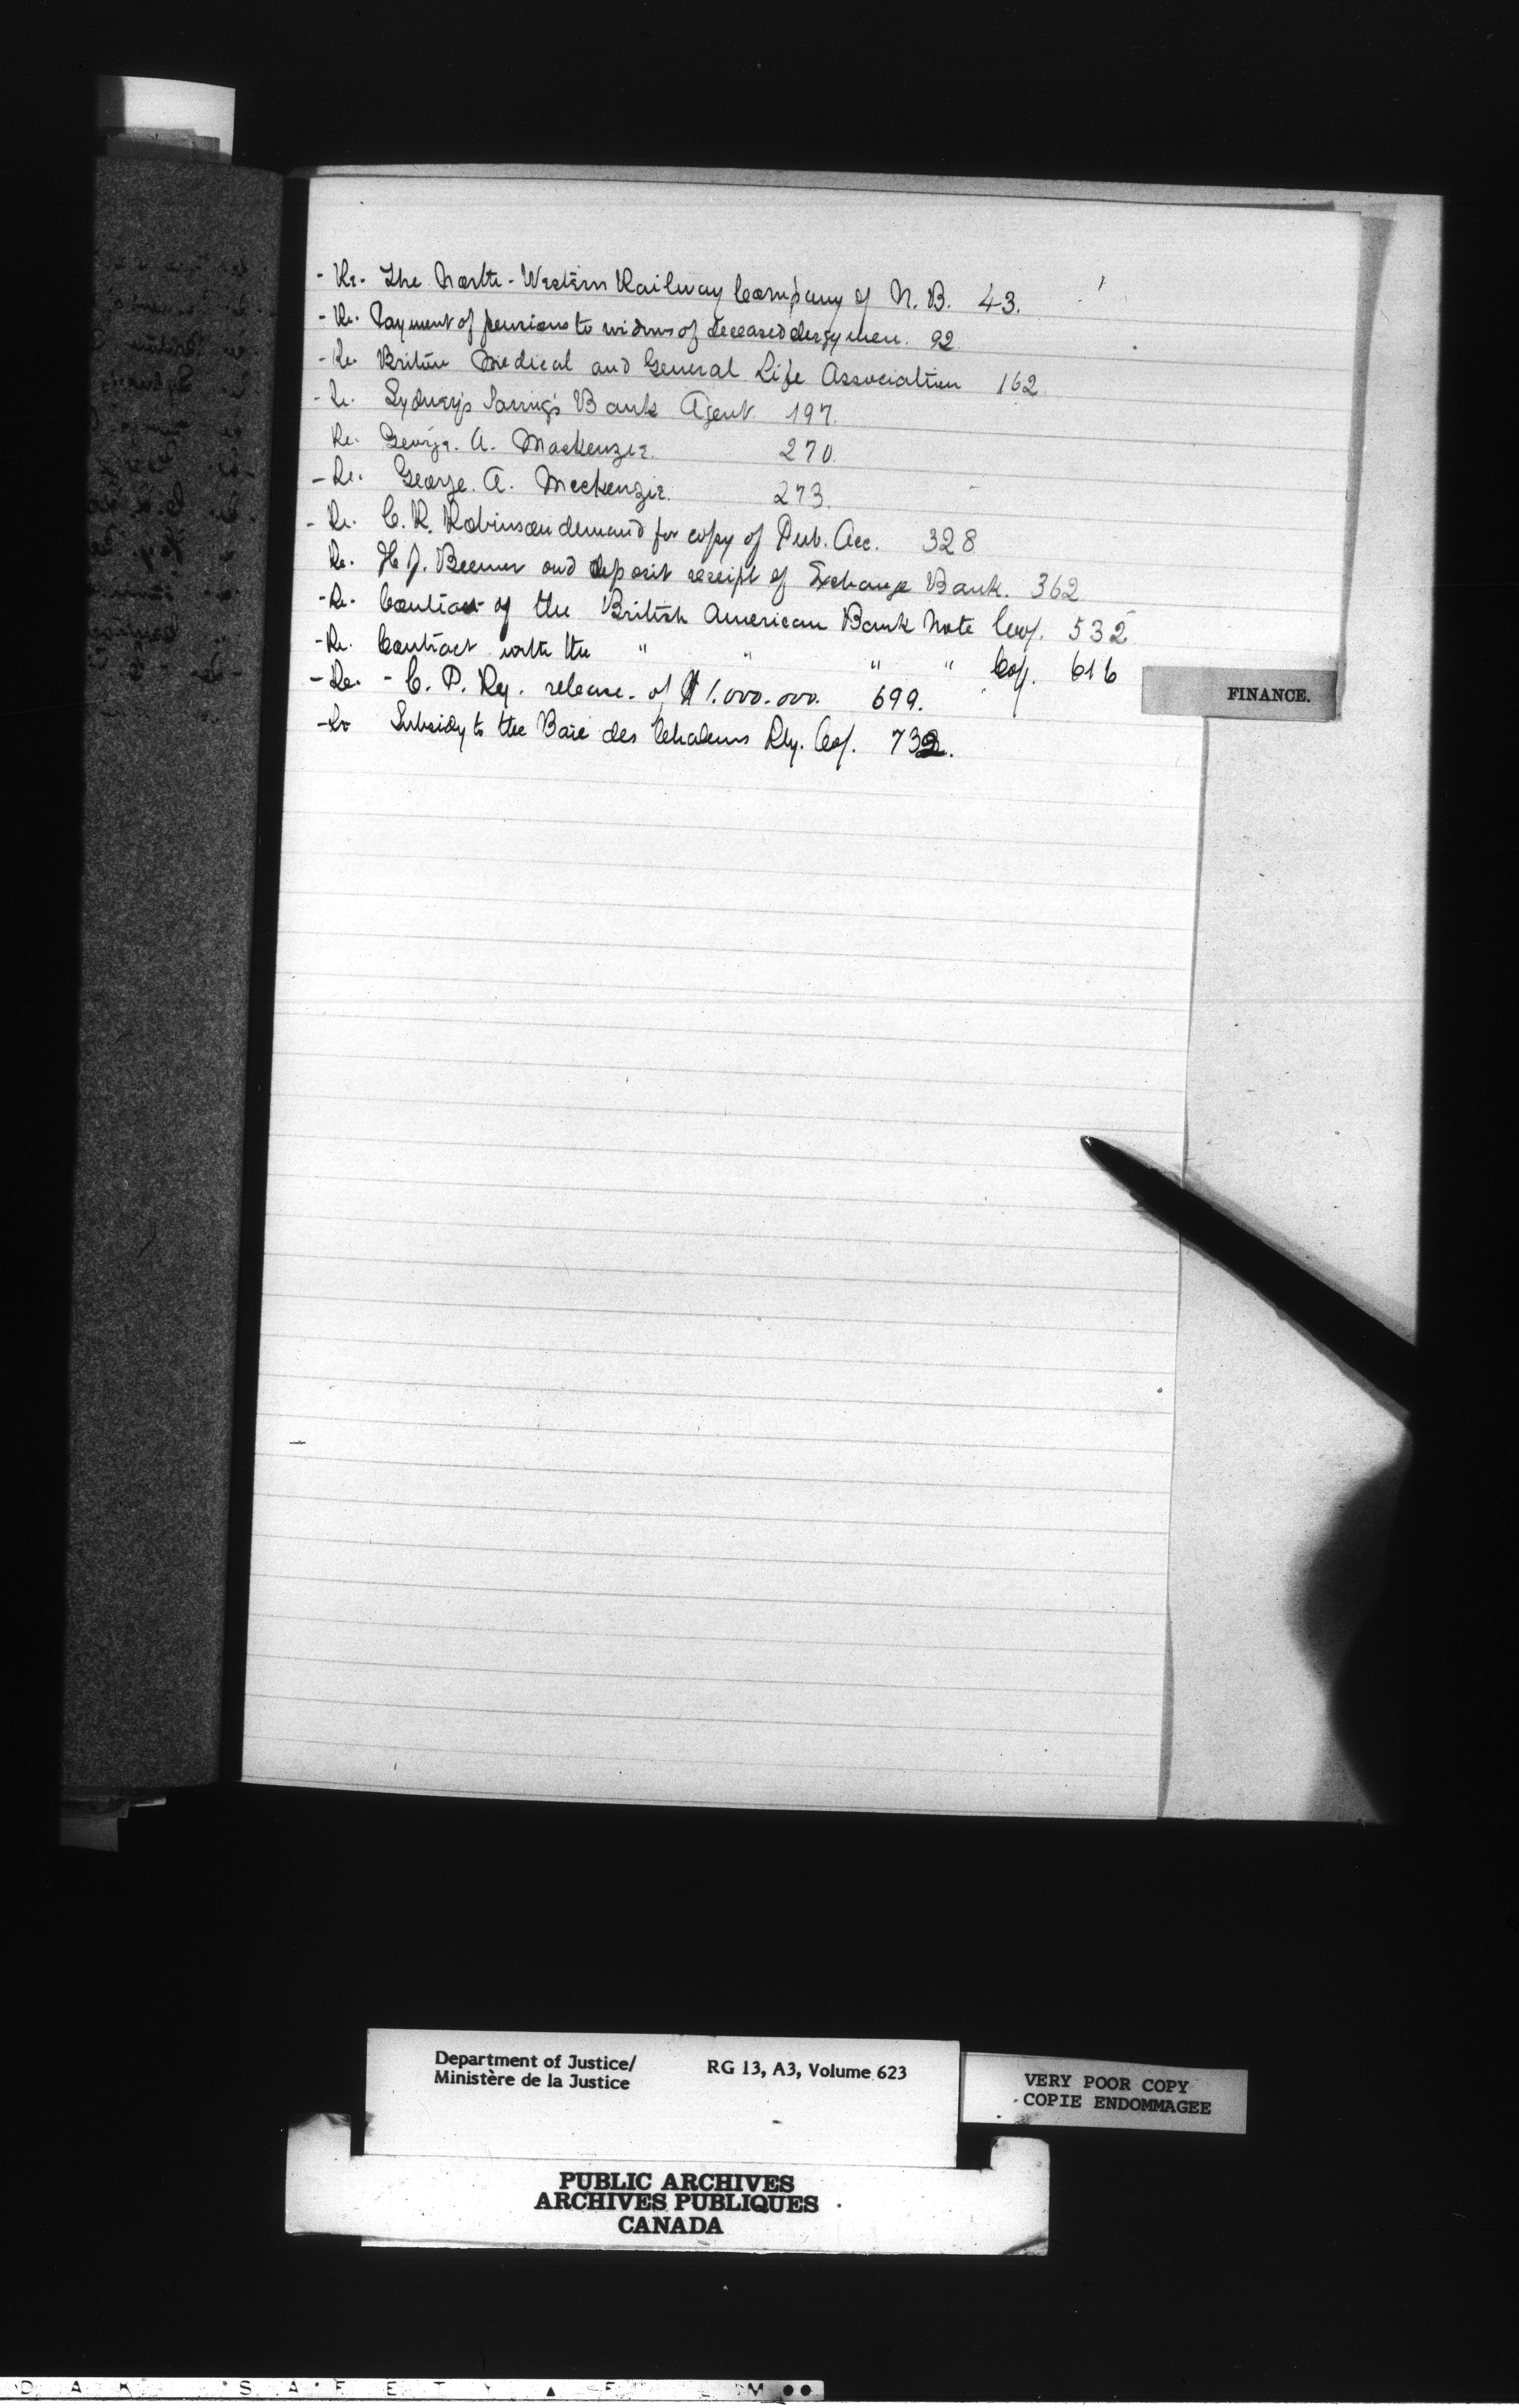 - Re. The North-Western Railway Company of N. B. 43.
- Re. Payment of pensions to widows of deceased clergymen. 92
- Re. Briton Medical and General Life Association 162.
- Re. Sydney's Savings Bank Agent. 197.
Re. George. A. Mackenzie. 270.
- Re. George. A. Mackenzie. 273.
- Re. C. R. Robinson demand for copy of Pub. Acc. 328
Re. H. J. Beemer and deposit receipt of Exchange Bank. 362
- Re. Contract of the British American Bank Note Coy. 532
- Re. Contract with the " " " " Coy. 616
- Re. - C. P. Ry. release. of $1.000.000. 699.
- Re Subsidy to the Baie des Chaleurs Rly. Coy. 732.
FINANCE.
Department of Justice/ RG 13, A3, Volume 623
Ministère de la Justice
VERY POOR COPY
COPIE ENDOMMAGEE
PUBLIC ARCHIVES
ARCHIVES PUBLIQUES
CANADA